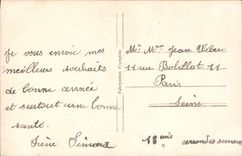 Je vous envoie mes
meilleurs souhaits
de bonne année
et surtout une bonne
santé.
Fabrication Française
Mr Mme Jean Weber
11 rue 11
Paris
Seine
18